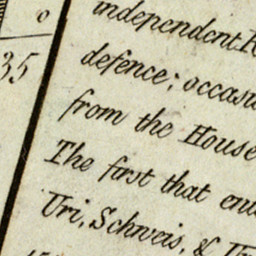 o
35
independent
defence; occasi
from the House
The first that en
Uri, Schweis, &